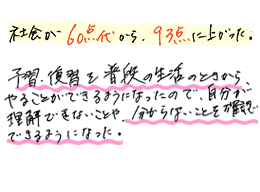 社会が60点代から、93点に上がった。
予習、復習を普段の生活のときから、
やることができるようになったので、自分が
理解できないことや、分からないことを確認で
できるようになった。